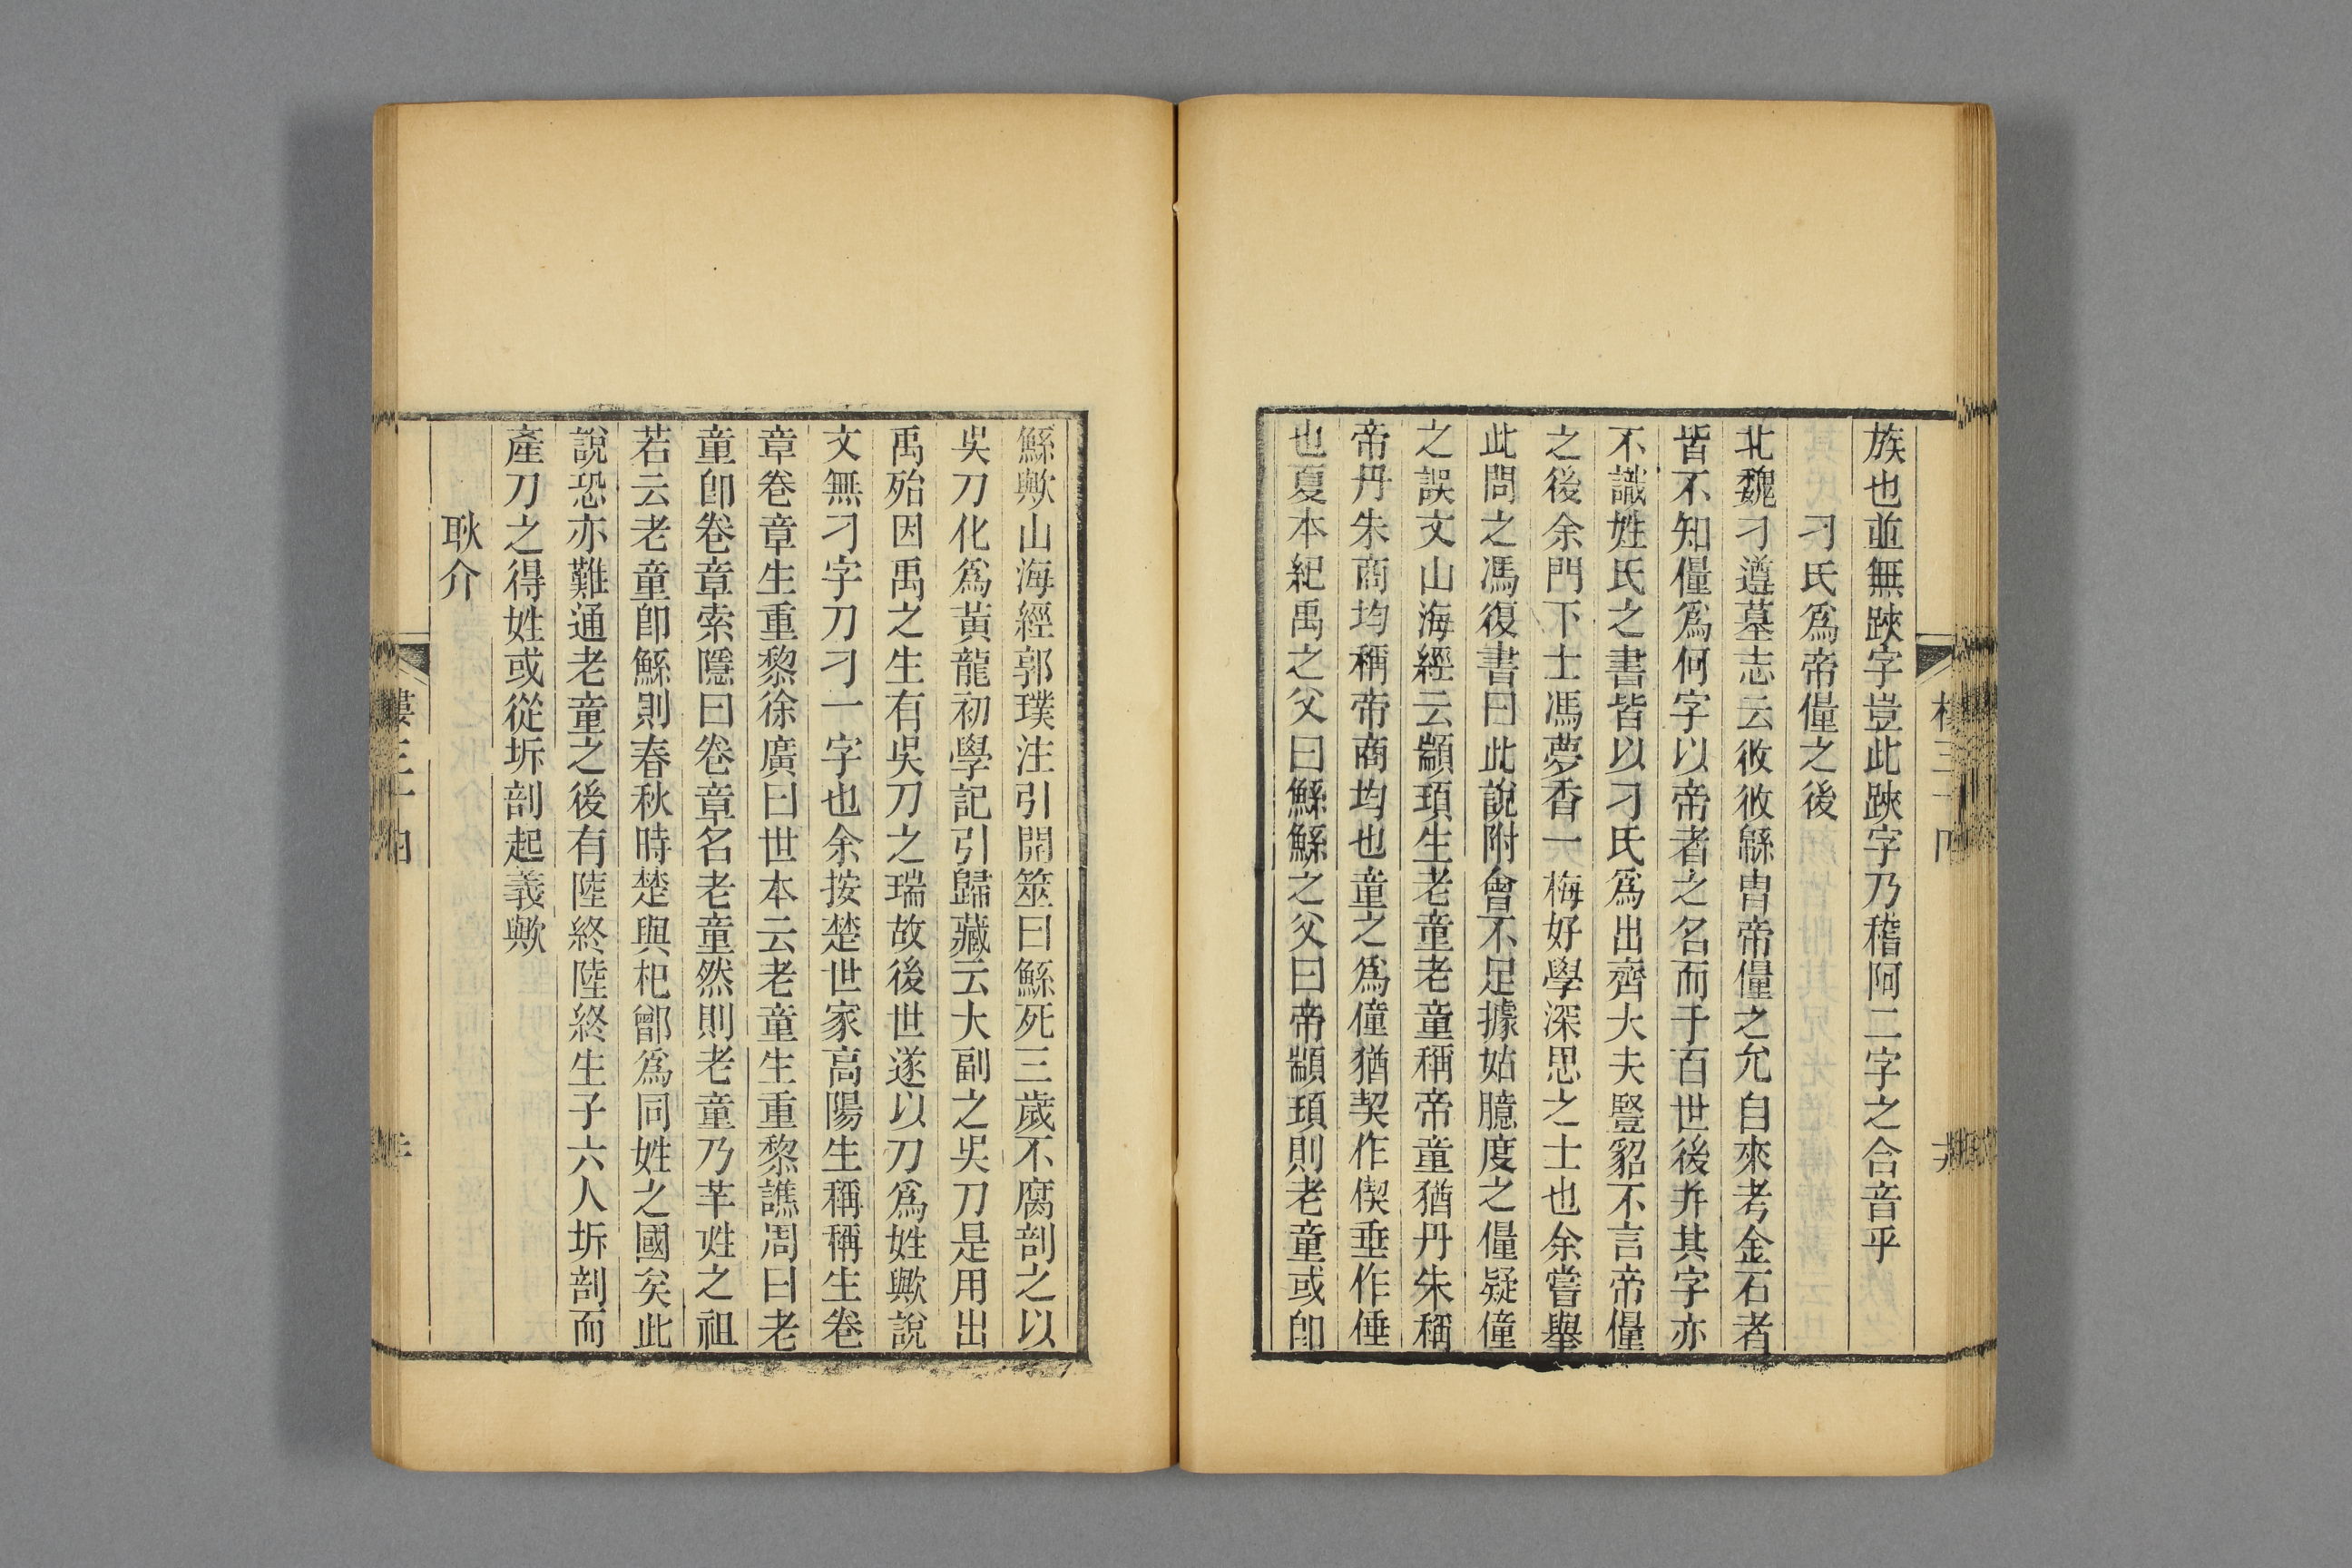 族也並無䟴字豈此䟴字乃稽阿二字之合音乎
刁氏爲帝僮之後
北魏刁遵墓志云攸攸緜冑帝僮之允自來考金石者
皆不知僮爲何字以帝者之名而于百世後并其字亦
不識姓氏之書皆以刁氏爲出齊大夫豎貂不言帝僮
之後余門下士馮夢香一梅好學深思之士也余嘗舉
此問之馮復書曰此說附會不足據姑臆度之僮疑僮
之誤文山海經云顓頊生老童老童稱帝童猶丹朱稱
帝丹朱商均稱帝商均也童之爲僮猶契作偰垂作倕
也夏本紀禹之父曰鯀鯀之父曰帝顓頊則老童或卽
鯀歟山海經郭璞注引開筮曰鯀死三歲不腐剖之以
吳刀化爲黃龍初學記引歸藏云大副之吳刀是用出
禹殆因禹之生有吳刀之瑞故後世遂以刀爲姓歟說
文無刁字刀刁一字也余按楚世家高陽生稱稱生卷
章卷章生重黎徐廣曰世本云老童生重黎譙周曰老
童卽卷章索隱曰卷章名老童然則老童乃芈姓之祖
若云老童卽鯀則春秋時楚與杞鄫爲同姓之國矣此
說恐亦難通老童之後有陸終陸終生子六人坼剖而
產刀之得姓或從坼剖起義歟
耿介